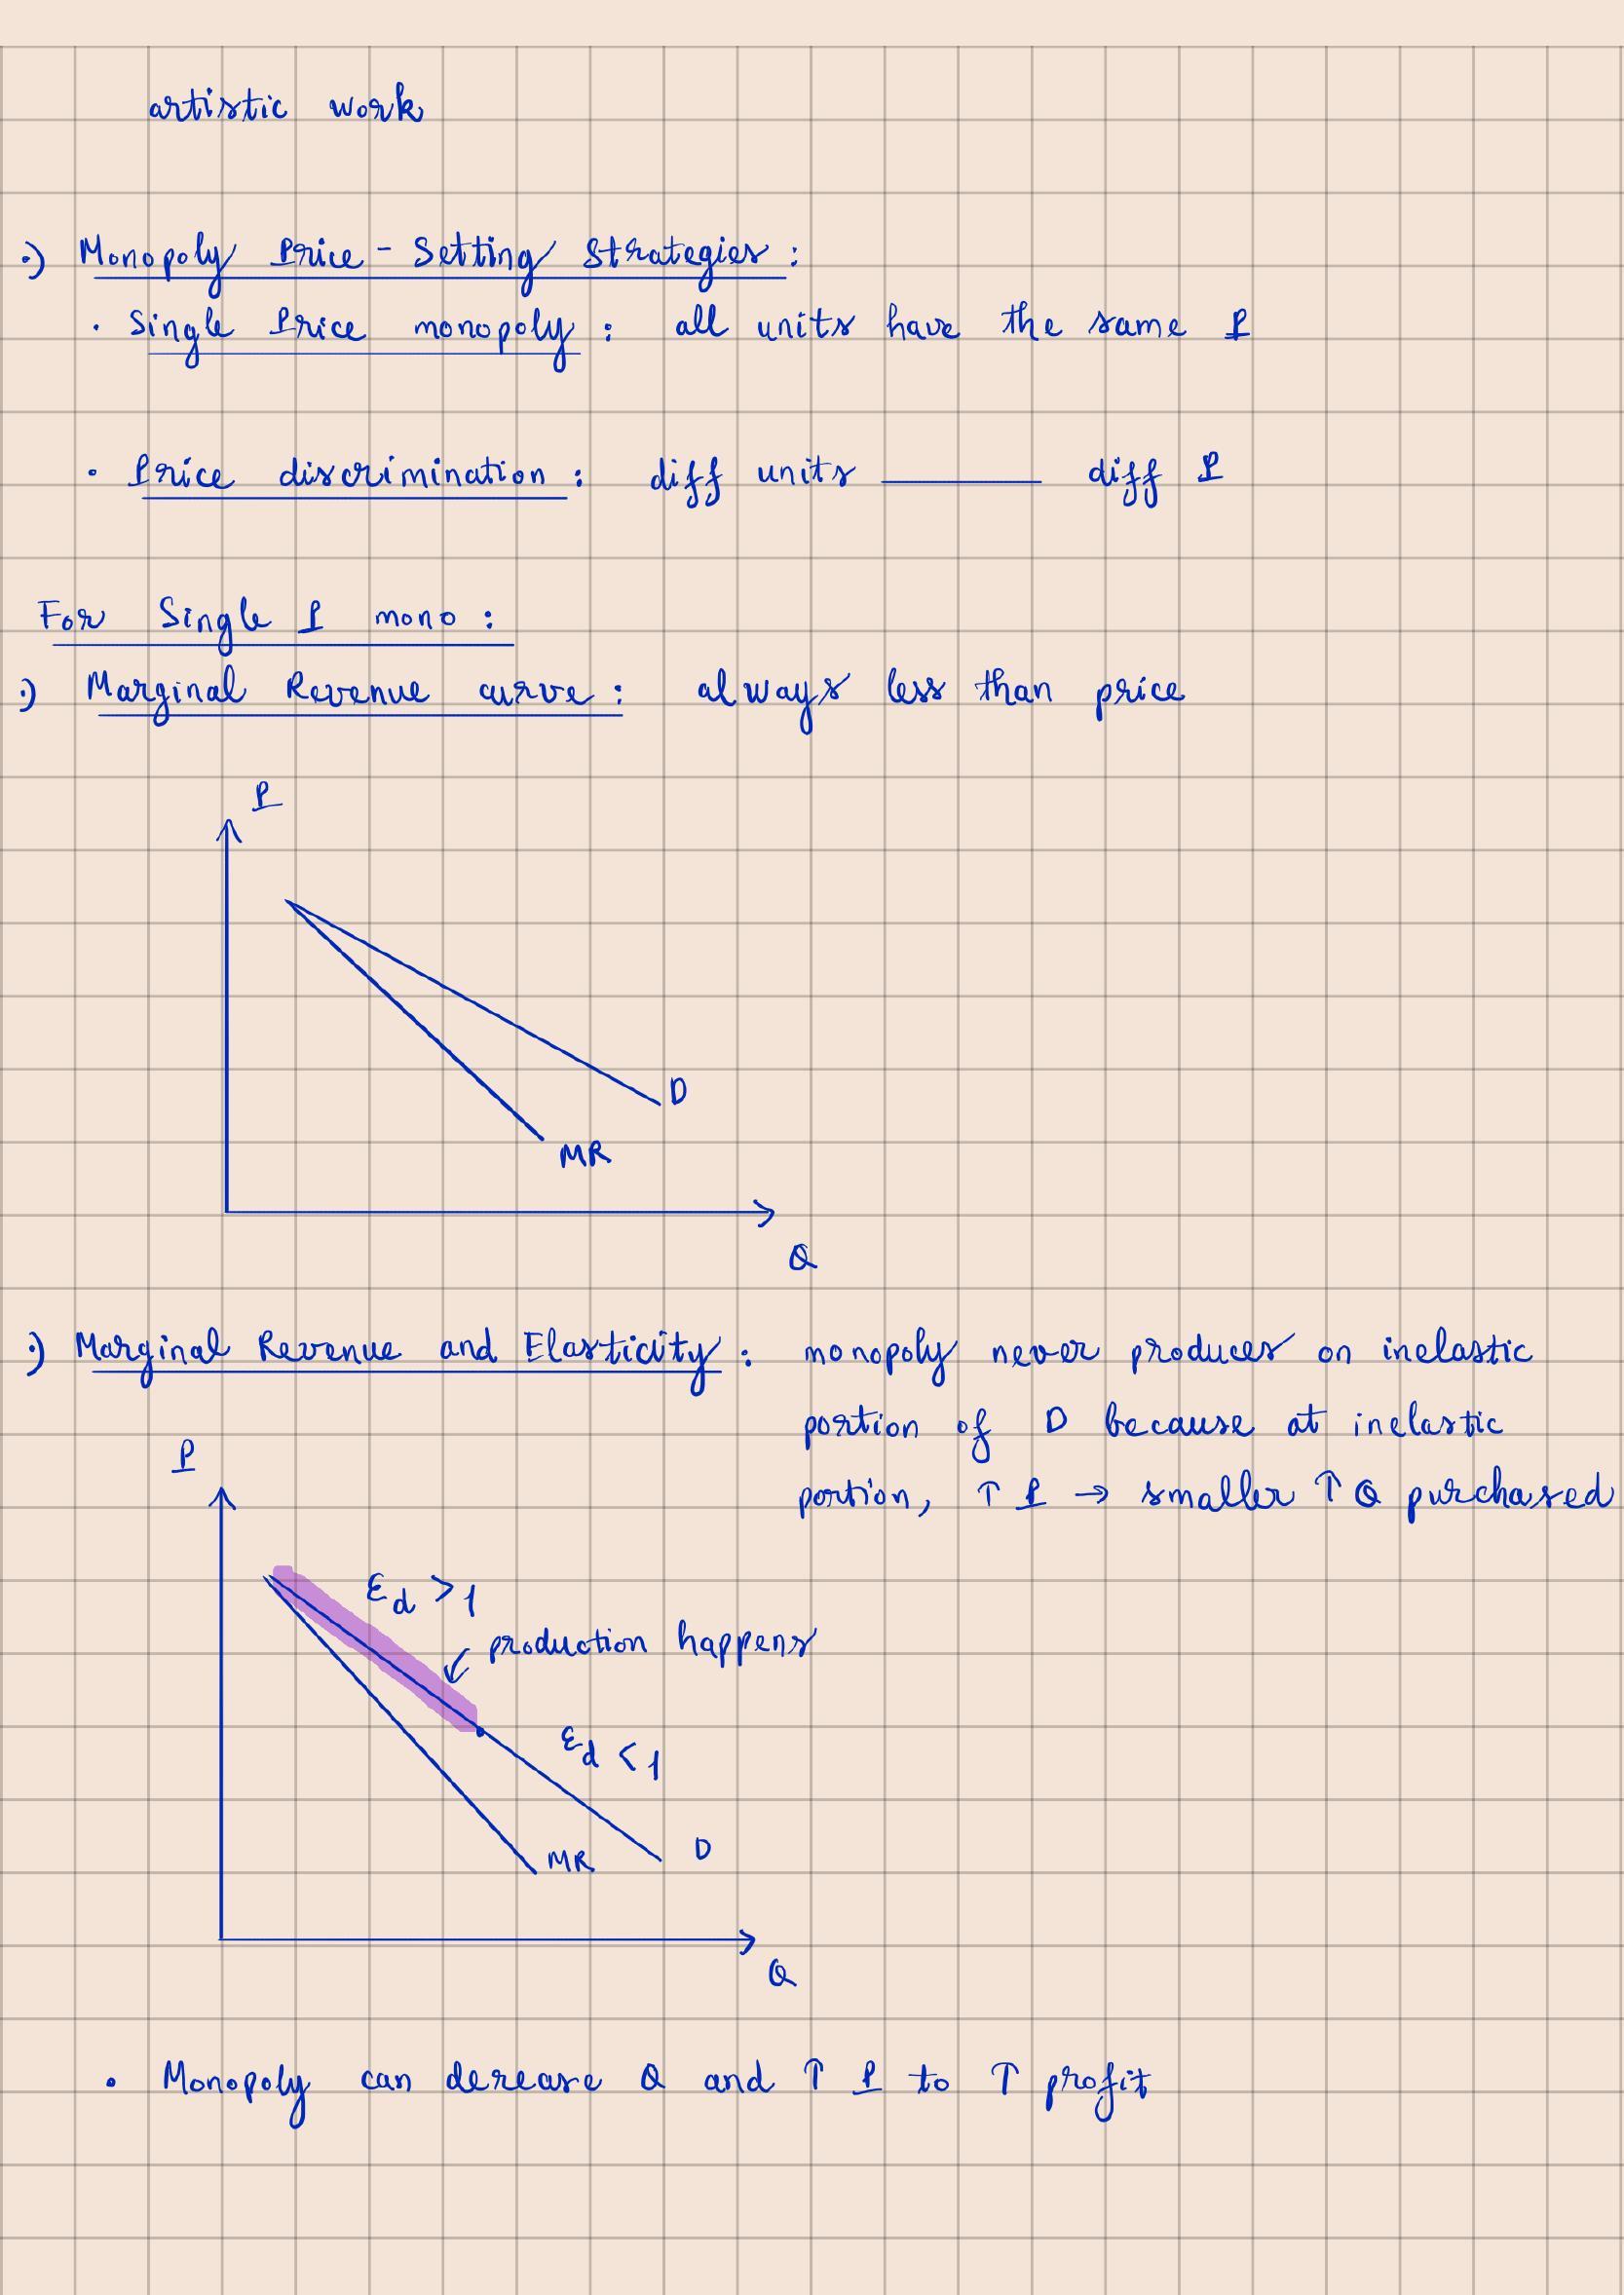 artistic work
·) Monopoly Price-Setting Strategies:
· Single Price monopoly: all units have the same P
· Price discrimination: diff units ——— diff P
For Single P mono:
·) Marginal Revenue curve: always less than price
P
D
MR
Q
·) Marginal Revenue and Elasticity: monopoly never produces on inelastic
portion of D because at inelastic
P
portion, ↑ P → smaller ↑ Q purchased
Ed > 1
↙ production happens
Ed < 1
D
MR
Q
· Monopoly can derease Q and ↑ P to ↑ profit